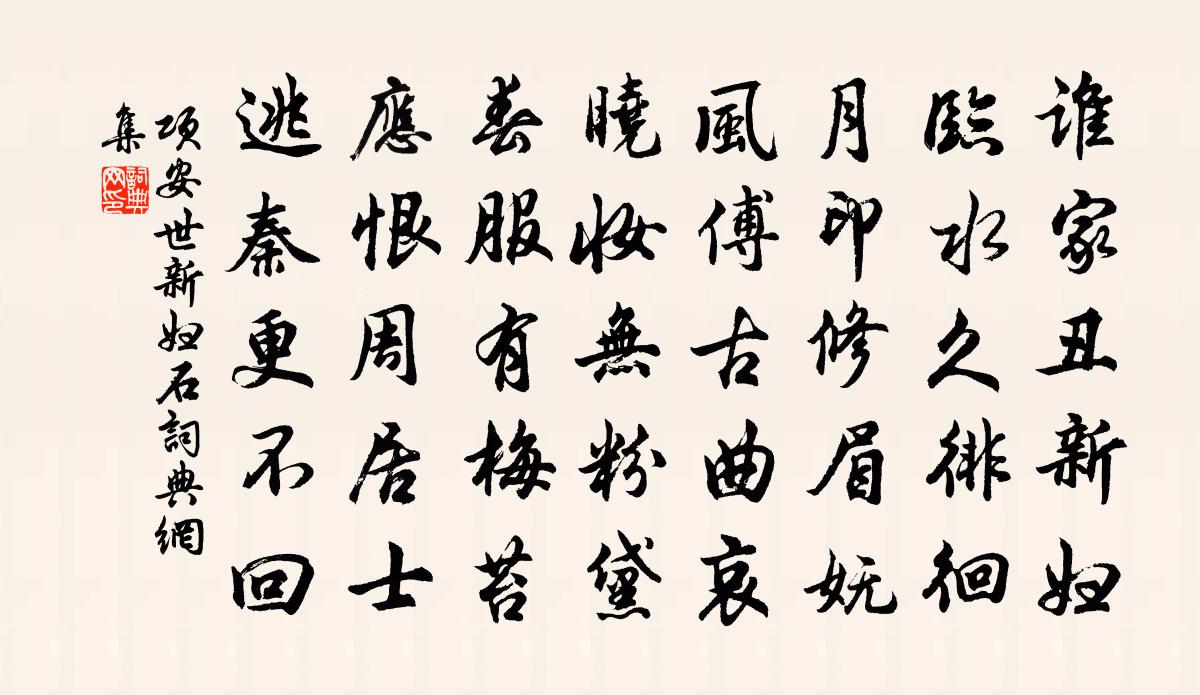 谁家丑新妇
臨水久徘徊
月印修眉妩
風傅古曲哀
曉妝無粉黛
春服有梅苔
應恨周居士
逃秦更不回
項安世新婦石詞典網
集
詞典
网印